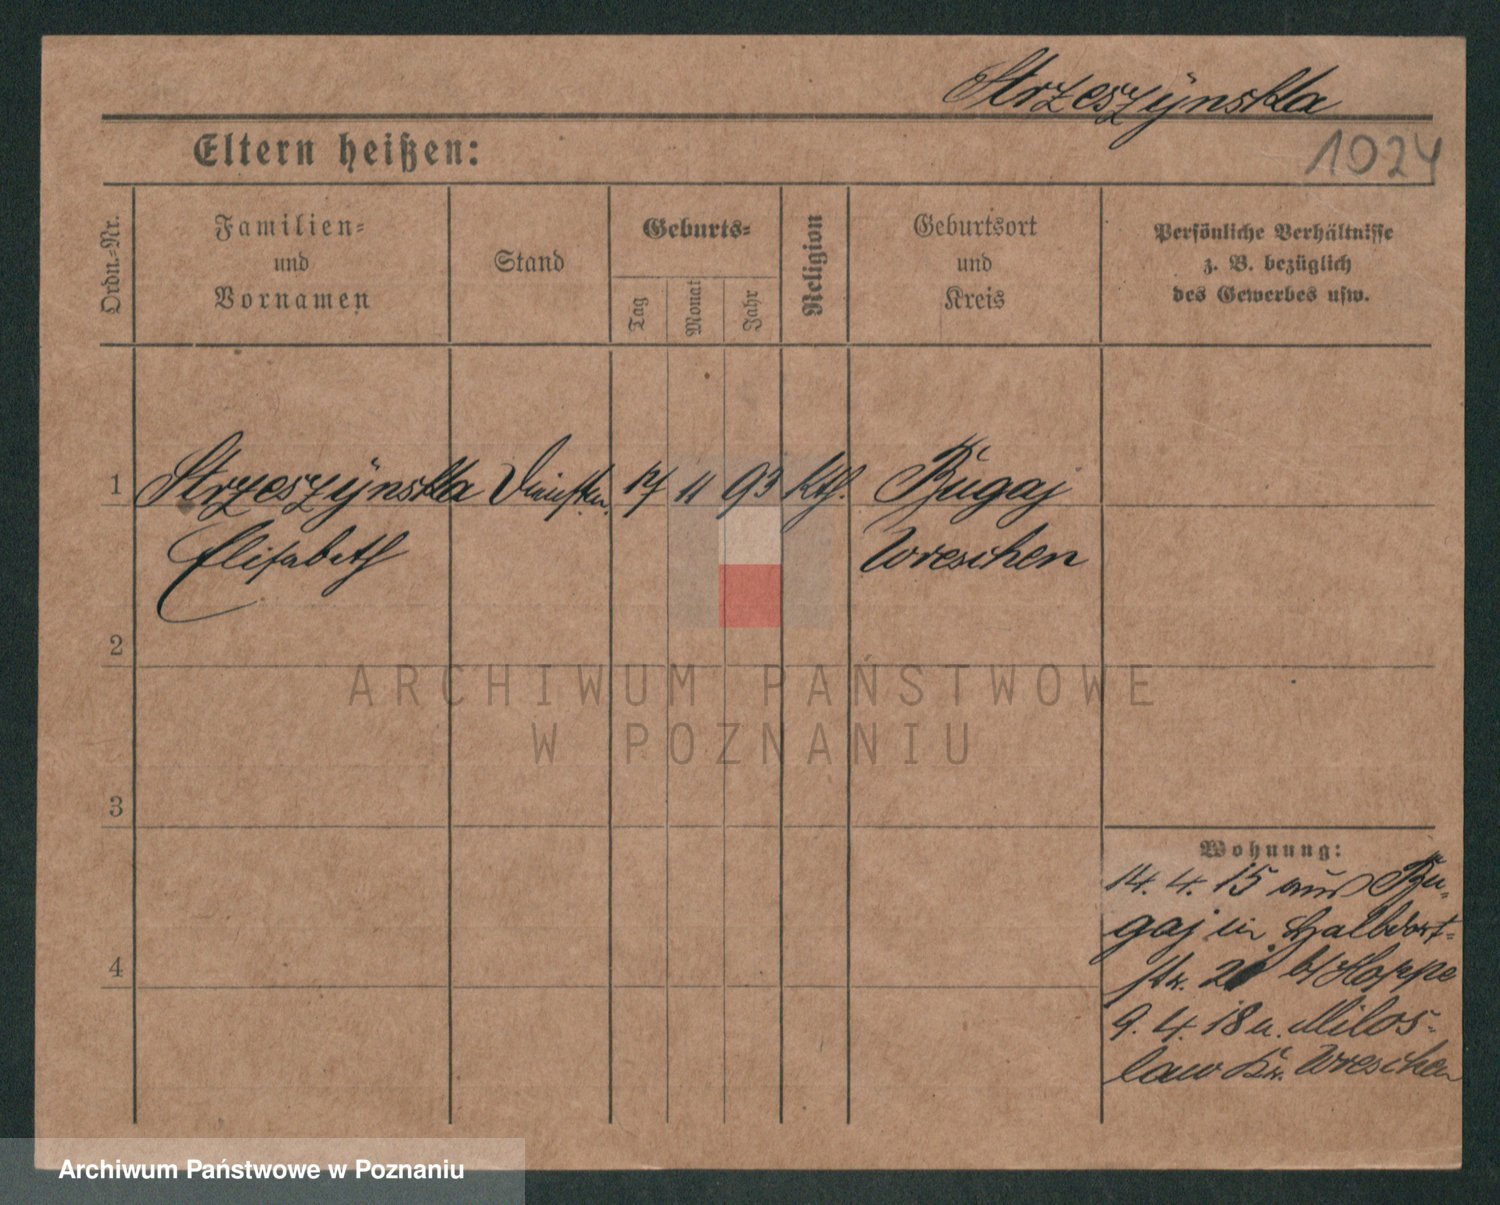 Strzeszÿnska
1024
Eltern heißen:
Ordn.-Nr.
Familien-
und
Vornamen
Stand
Geburts-
Tag
Monat
Jahr
Religion
Geburtsort
und
Kreis
Persönliche Verhältnisse
z. B. bezüglich
des Gewerbes usw.
1 Strzeszÿnska 11 93 Kth. Bugaj
Elisabeth Wreschen
2
ARCHIWUM PAŃSTWOWE
W POZNANIU
3
4
Wohnung:
14. 4. 15 aus Bu-
gaj in Halbdorf-
str. b/ Hoppe
9. 4. 18 n. Milos-
law Kr. Wreschen
Archiwum Państwowe w Poznaniu